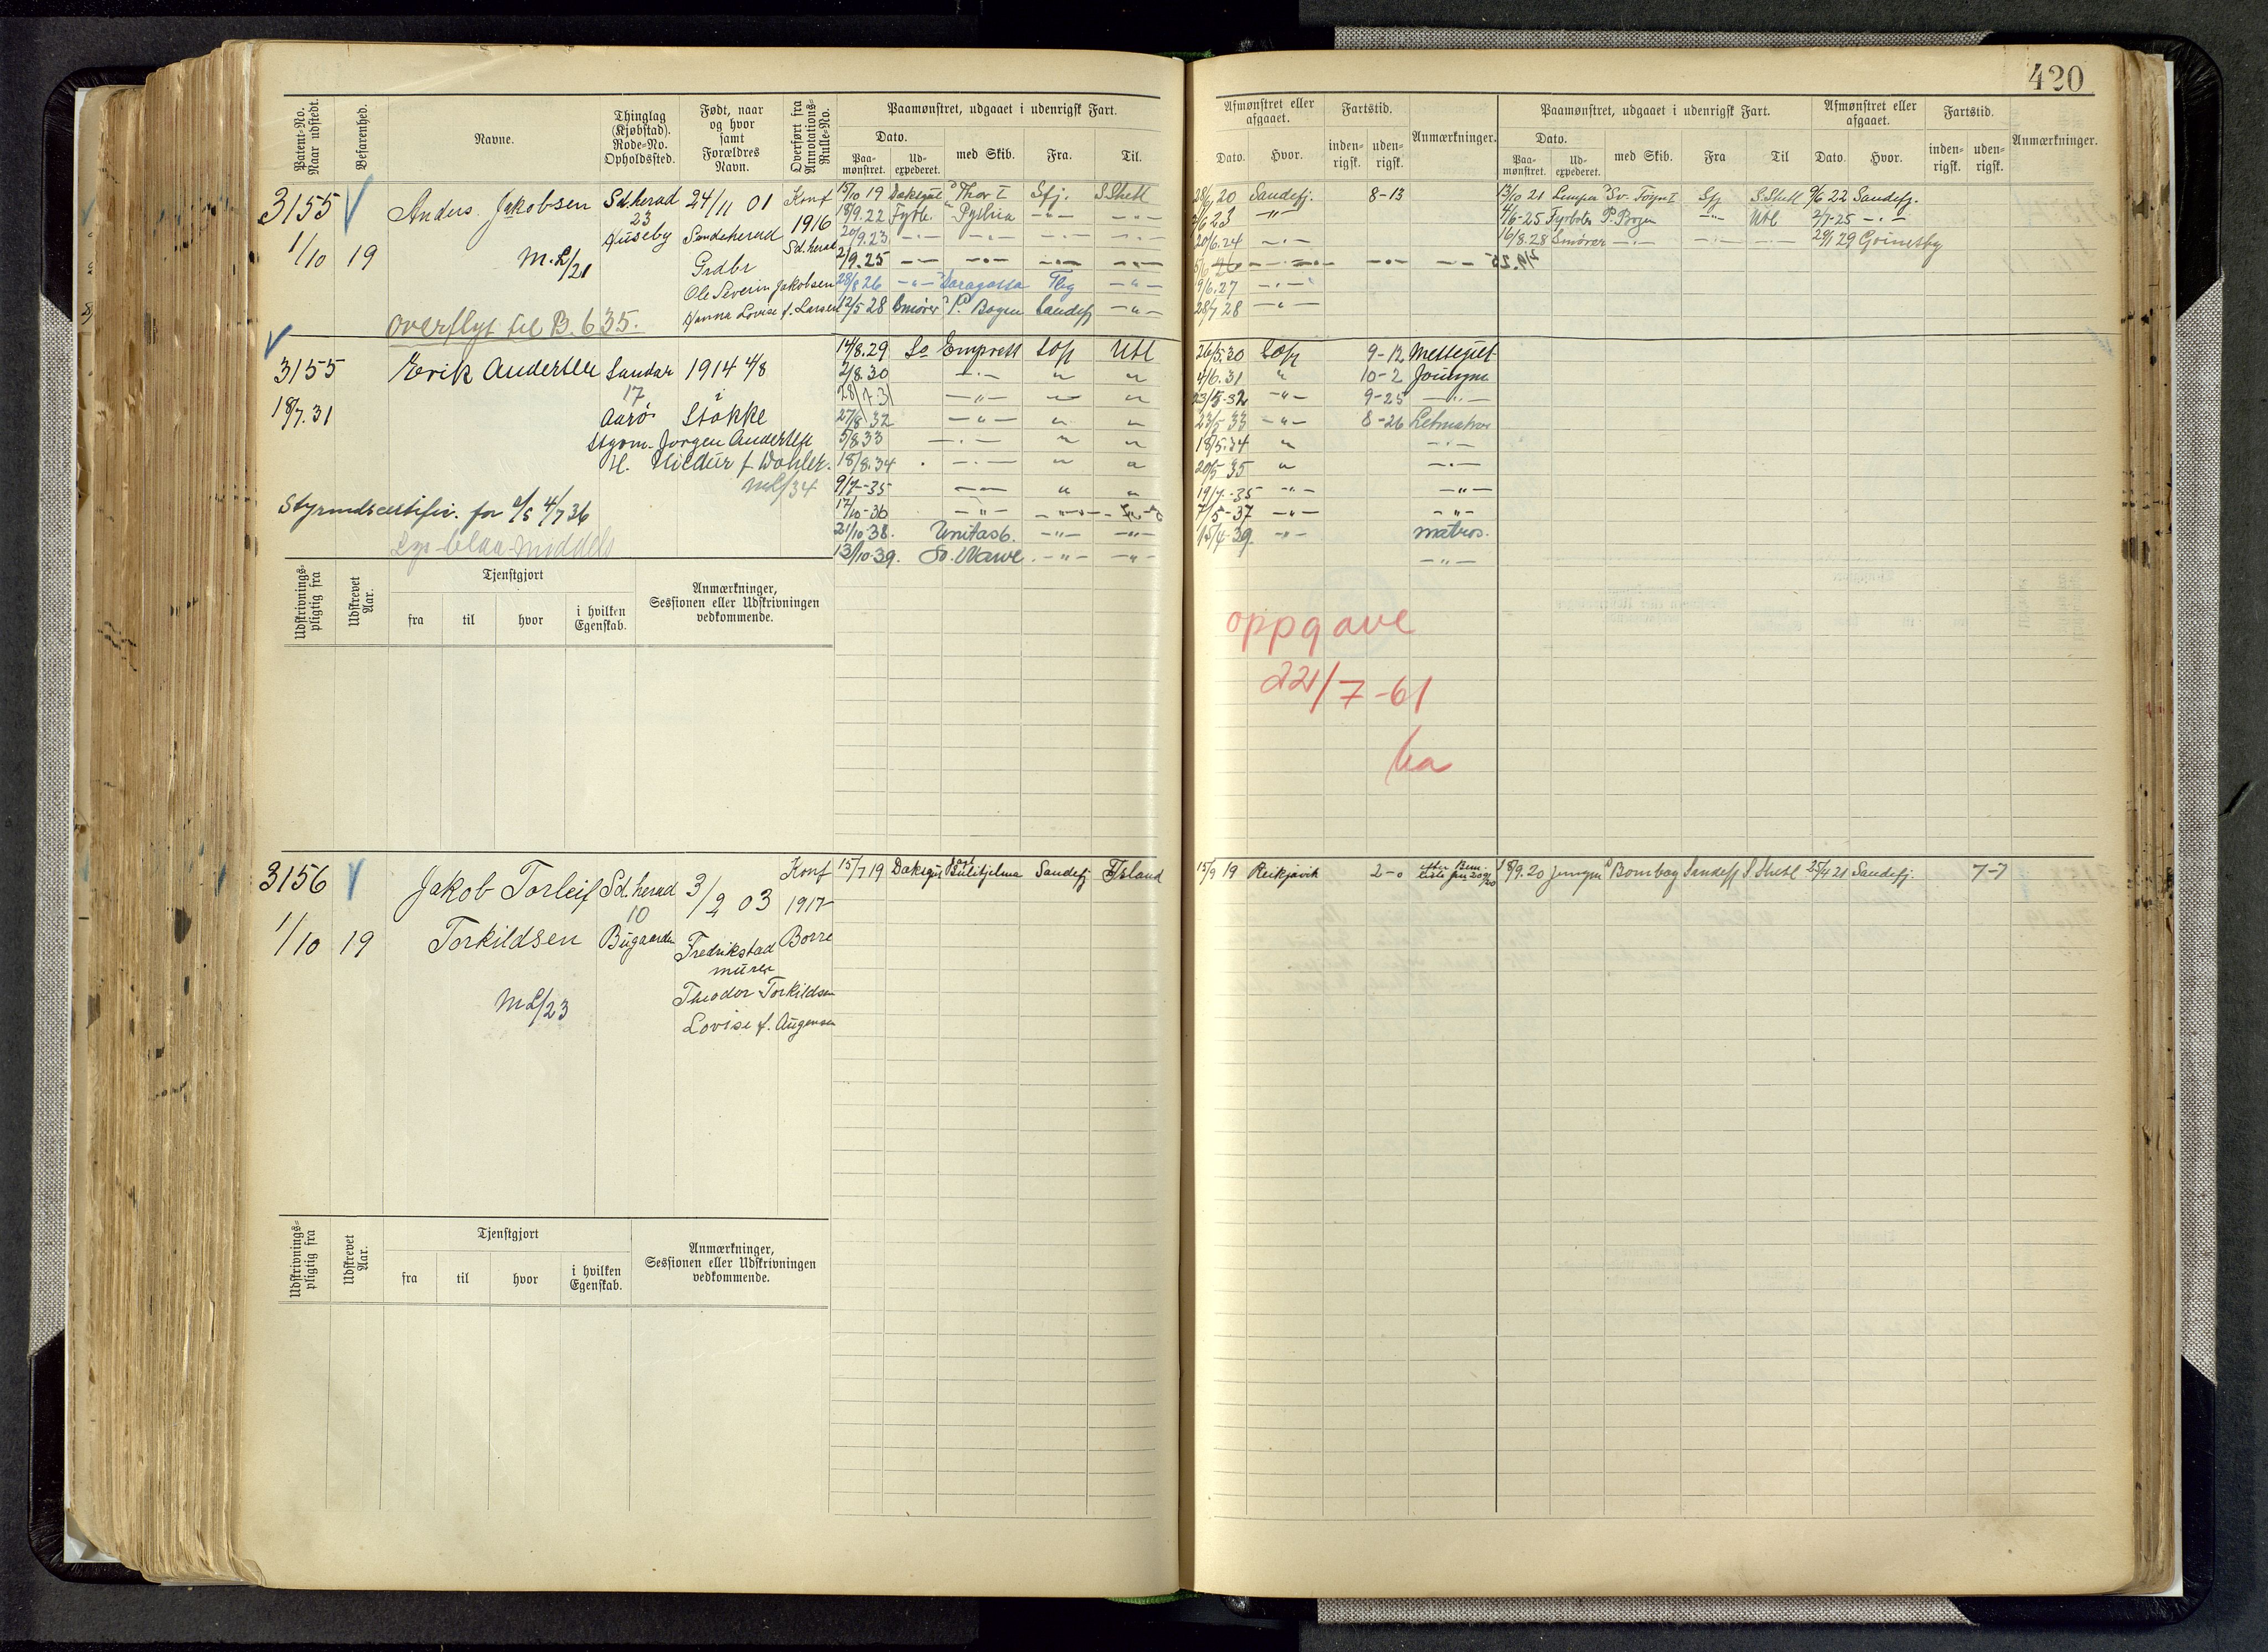 420
Patent-No. Naar udstedt.
Befarenhed.
Navne.
Thinglag (Kjøbstad). Rode-No. Opholdssted.
Født, naar og hvor samt Forældres Navn.
Overført fra Annotations-Rulle-No.
Paamønstret, udgaaet i udenrigsk Fart.
Dato.
Paa-mønstret.
Ud-expederet.
med Skib.
Fra.
Til.
Afmønstret eller afgaaet.
Dato.
Hvor.
Fartstid.
inden-rigsk.
uden-rigsk.
Anmærkninger.
Paamønstret, udgaaet i udenrigsk Fart.
Dato.
Paa-mønstret.
Ud-expederet.
med Skib.
Fra
Til
Afmønstret eller afgaaet.
Dato.
Hvor.
Fartstid.
inden-rigsk.
uden-rigsk.
Anmærkninger.
3155
1/10 19
Anders Jakobsen
M.L/21
overflyt til B. 635.
Sd.herad
23
Huseby
24/11 01
Sandeherad
Grdbr
Ole Severin Jakobsen
Hanna Lovise f. Larsen
Konf
1916
Sd.herad
15/10 19 Thor I Sfj. S.Shetl 28/6 20 Sandefj. 8-13
18/9.22 Fyrb. Pythia -"- -"- 23 -"-
20/9.23 -"- -"- -"- -"- 20/6.24 -"-
2/9.25 -"- -"- -"- -"-
28/8 26 -"- Saragossa Tbg -"- 9/6.27 -"-
12/5 28 Smører P. Bogen Sandefj -"- 28/7 28 -"-
13/10 21 Lemper Sv. Foyn I Sfj S.Shetl 9/6 22 Sandefj.
4/6-25 Fyrbøter P. Bogen -"- Utl 2/7-25 -"-
16/8.28 Smører -"- -"- -"- 29/1 29 Grimsby
3155
18/7.31
Erik Andersen
Sandar
17
Aarø
1914 4/8
i
Stokke
Styrm. Jørgen Andersen
H. Hildur f. Dohler.
ML/34
Styrmdscertific. for 4/7 36
Lys blaa middels
14/8.29 So Empress Sdfj Utl 26/5.30 Sdfj 9-12 Messegut
2/8.30 -"- " " 4/6.31 " 10-2 Jungm.
28/7 31 -"- " " 23/5-32 -"- 9-25 -"-
27/8 32 -"- " " 23/5 33 -"- 8-26 Letmatros
5/8.33 -"- " " 18/5.34 " -"-
18/8.34 -"- " " 20/5 35 " -"-
9/7-35 -"- " " 19/7-35 -"- -"-
17/10-36 -"- -"- 7/5-37 -"- -"-
21/10-38. Unitas 6. -"- -"- 15/4-39 -"- matros.
13/10-39. -"- -"- -"-
oppgave
22/7-61
Udskrivnings-pligtig fra
Udskrevet Aar.
Tjenstgjort
fra
til
hvor
i hvilken Egenskab.
Anmærkninger, Sessionen eller Udskrivningen vedkommende.
3156
1/10 19
Jakob Torleif
Torkildsen
ML/23
Sd.herad
10
Bugaarden
3/2 03
Fredrikstad
murer
Theodor Torkildsen
Lovise f. Augensen
Konf
1917
Borre
15/7 19 Daksgut Sulitjelma Sandefj Island 15/9 19 Reikjavik 2-0
18/9.20 Jungm Bombay Sandefj S Shetl 25/4 21 Sandefj. 7-7
Udskrivnings-pligtig fra
Udskrevet Aar.
Tjenstgjort
fra
til
hvor
i hvilken Egenskab.
Anmærkninger, Sessionen eller Udskrivningen vedkommende.